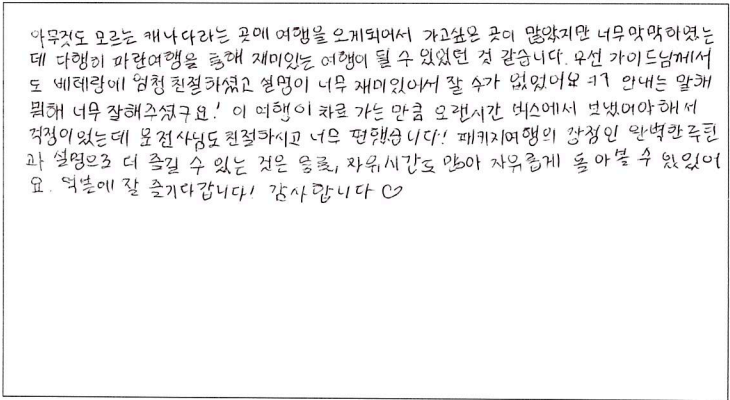 아무것도 모르는 캐나다라는 곳에 여행을 오게되어서 가고싶은 곳이 많았지만 너무 막막하였는
데 다행히 파란여행을 통해 재미있는 여행이 될 수 있었던 것 같습니다. 우선 가이드님께서
도 베테랑에 엄청 친절하셨고 설명이 너무 재미있어서 잘 수가 없었어요ㅋㅋ 안내는 말해
뭐해 너무 잘해주셨구요! 이 여행이 차로 가는 만큼 오랜시간 버스에서 보냈어야 해서
걱정이 있는데 운전사님도 친절하시고 너무 편했습니다! 패키지여행의 장점인 완벽한 루틴
과 설명으로 더 즐길 수 있는 것은 물론, 자유시간도 많아 자유롭게 돌아볼 수 있었어
요. 덕분에 잘 즐기다갑니다! 감사합니다 ♡